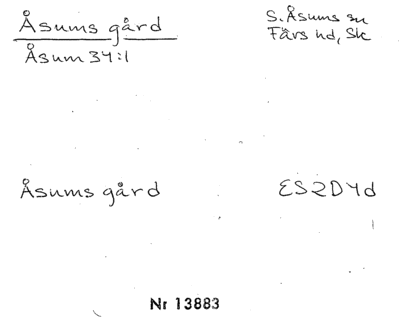 Åsums gård
S. Åsums sn
Åsum 34:1
Färs hd, Sk
Åsums gård
ES2D4d
Nr 13883